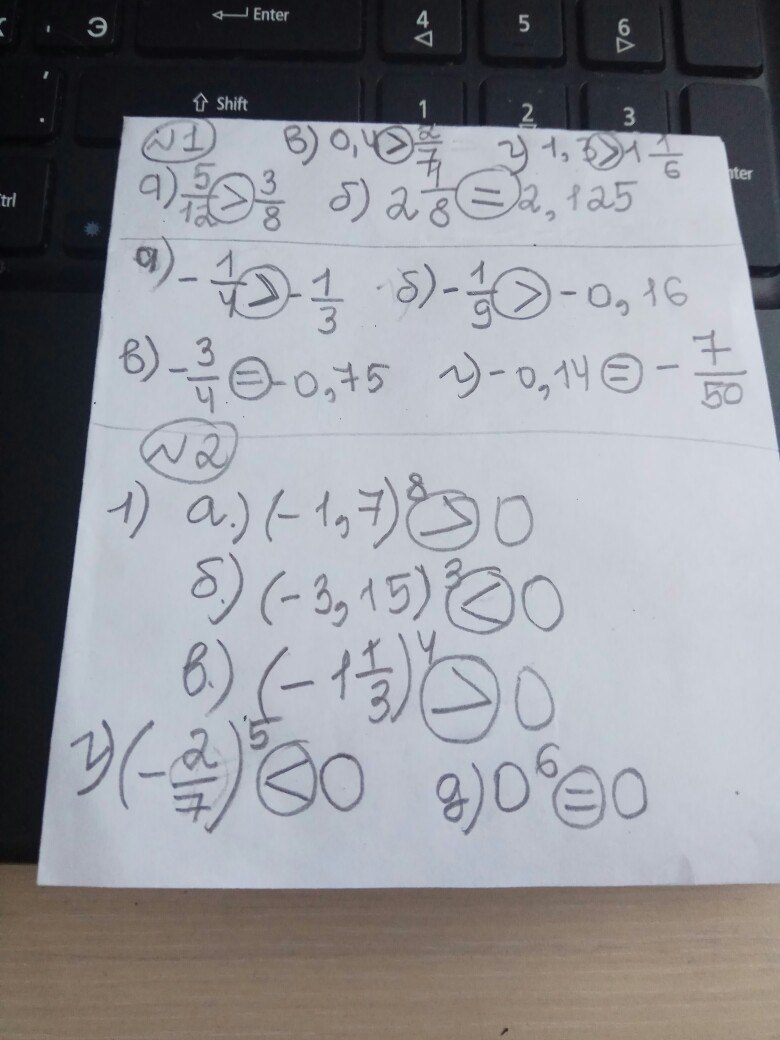 Э Enter 4 5 6
Shift 1 2 3
trl
nter
№1 в) 0,4 > 2/7 г) 1,3 > 1 1/6
а) 5/12 > 3/8 б) 2 1/8 = 2,125
а) -1/4 > -1/3 б) -1/9 > -0,16
в) -3/4 = -0,75 г) -0,14 = -7/50
№2
1) а.) (-1,7)⁸ > 0
б.) (-3,15)³ < 0
в.) (-1 1/3)⁴ > 0
г) (-2/7)⁵ < 0 д) 0⁶ = 0